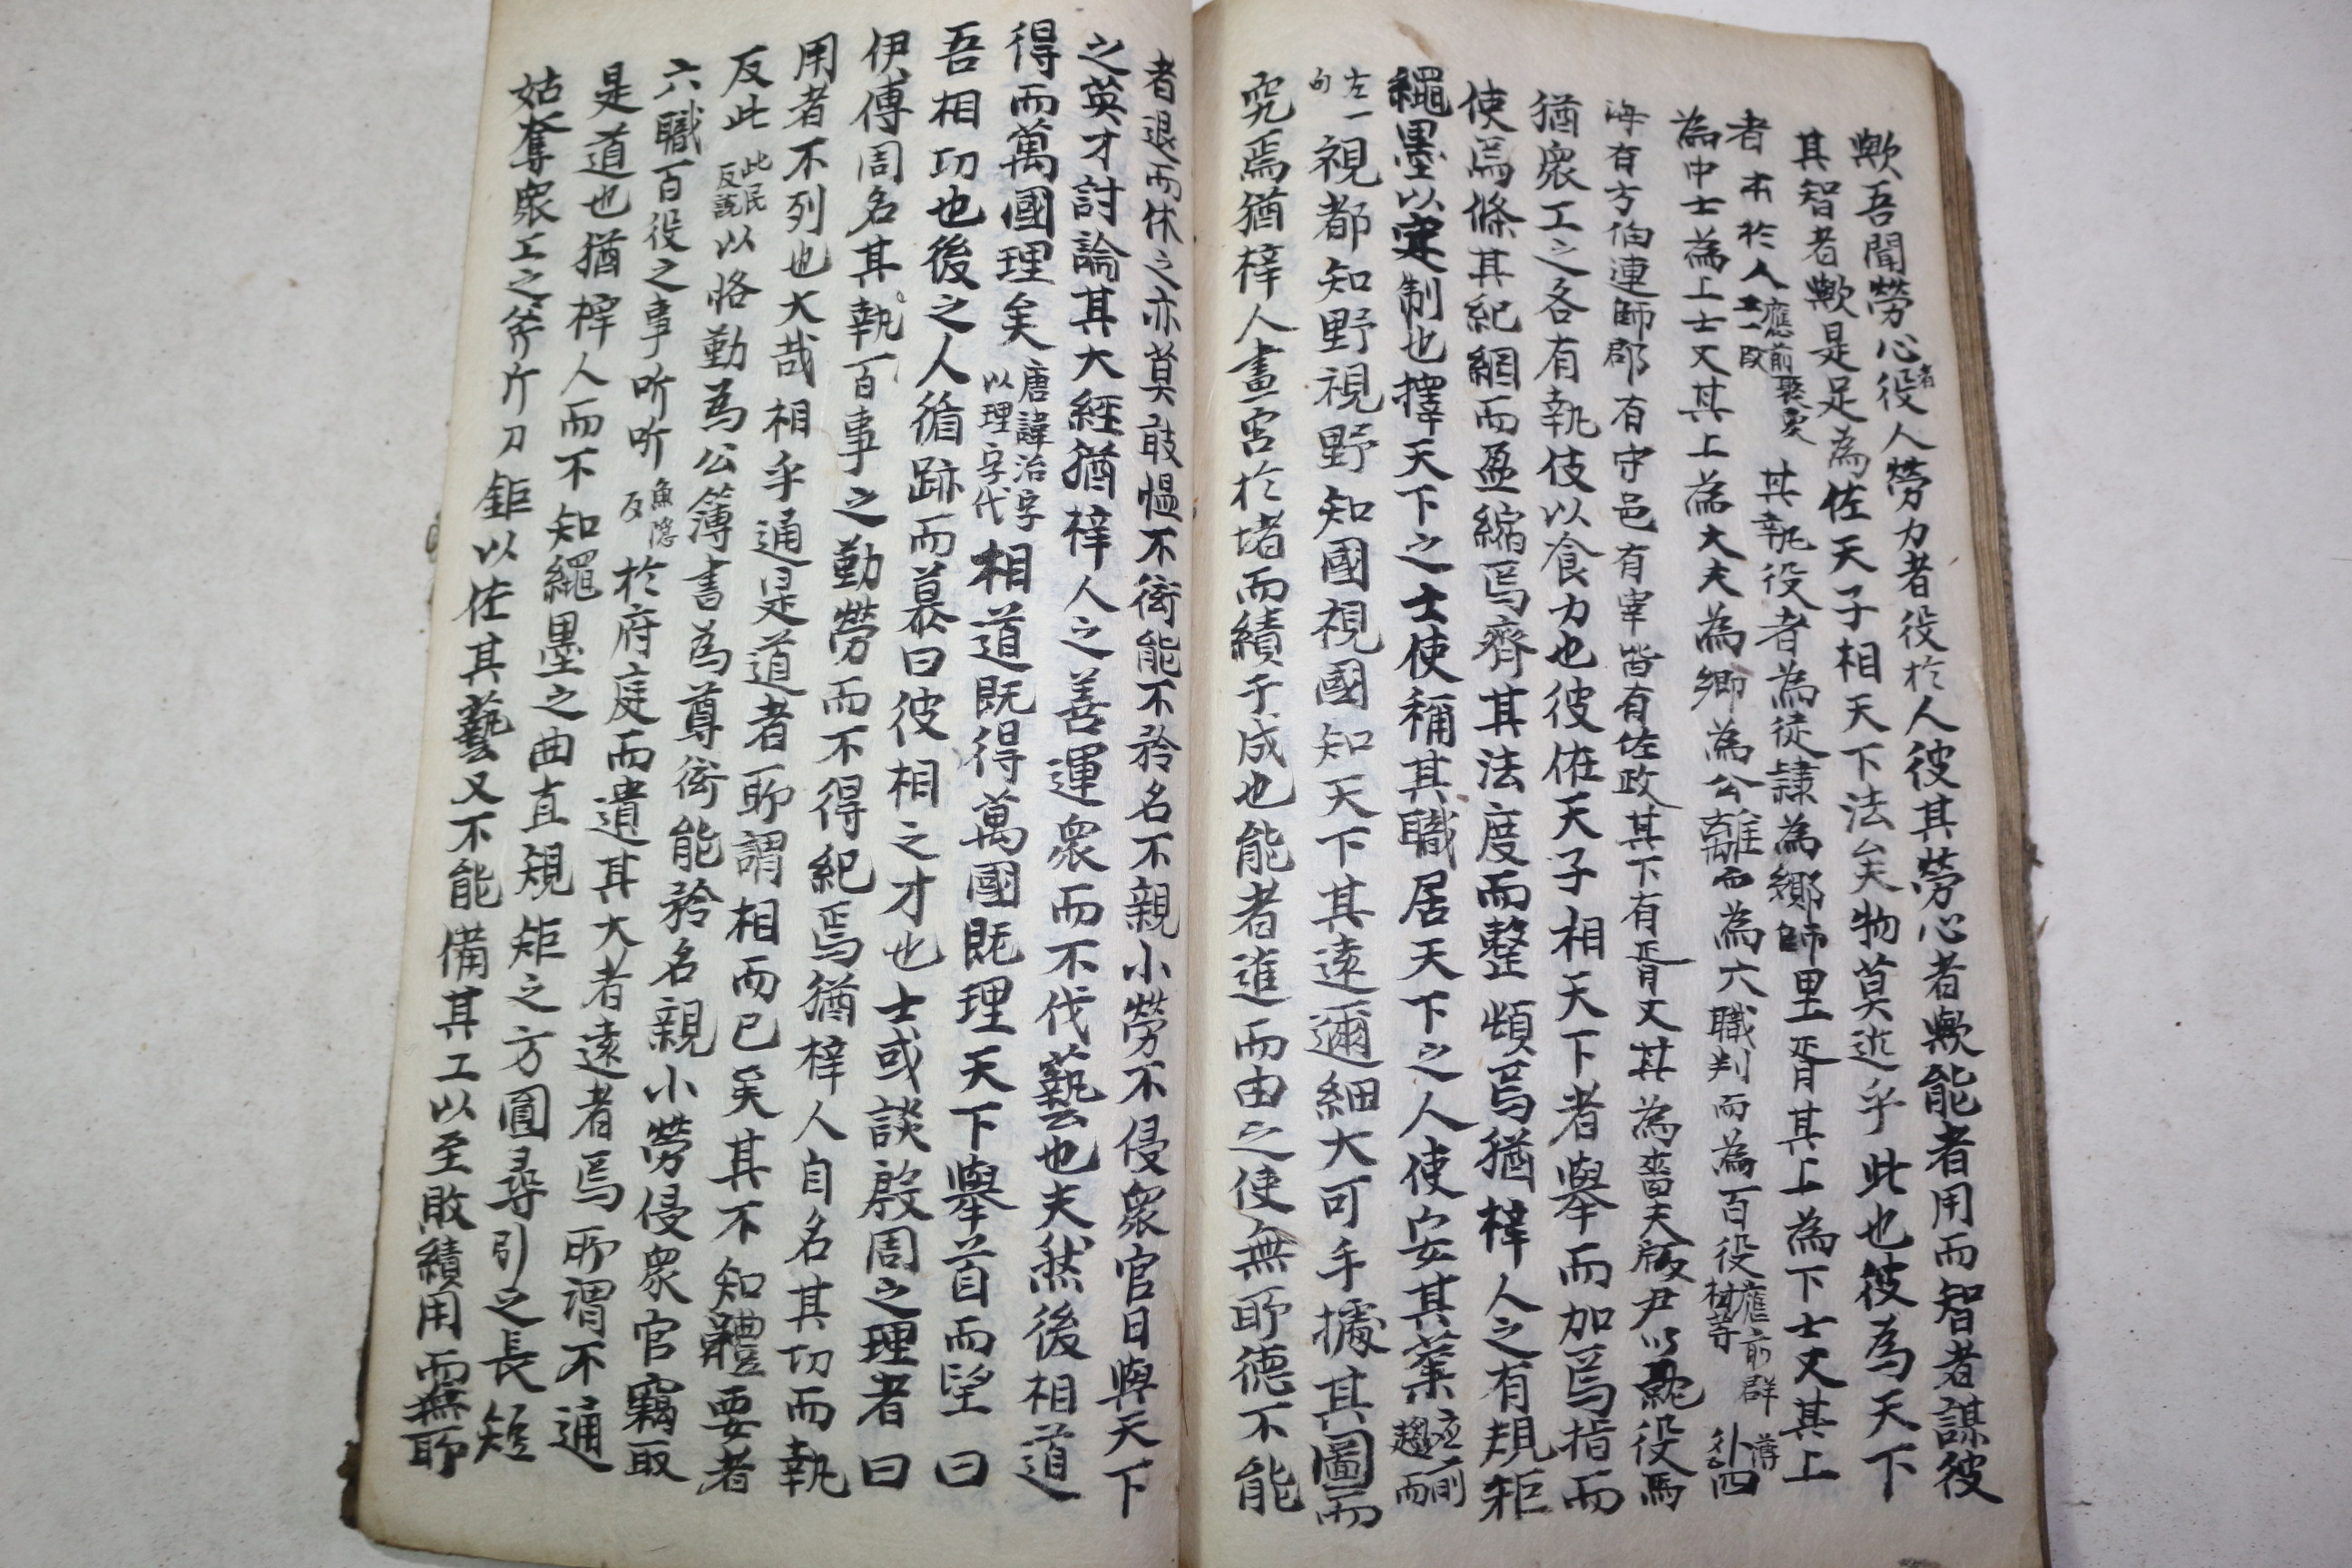 歟吾聞勞心者役人勞力者役於人彼其勞心者歟能者用而智者謀彼
其智者歟是足為佐天子相天下法矣物莫近乎此也彼為天下
者本於人應前聚衆工一段其執役者為徒隷為鄉師里胥其上為下士又其上
為中士為上士又其上為大夫為卿為公離而為六職判而為百役應前群材等薄外四
海有方伯連師郡有守邑有宰皆有佐政其下有胥又其為嗇夫版尹以就役焉
猶衆工之各有執伎以食力也彼佐天子相天下者舉而加焉指而
使焉條其紀綱而盈縮焉齊其法度而整頓焉猶梓人之有規矩
繩墨以定制也擇天下之士使稱其職居天下之人使安其業應前趨而
左一句視都知野視野知國視國知天下其遠邇細大可手據其圖而
究焉猶梓人畫宮於堵而績于成也能者進而由之使無所德不能
者退而休之亦莫敢慍不衒能不矜名不親小勞不侵衆官日與天下
之英才討論其大經猶梓人之善運衆而不伐藝也夫然後相道
得而萬國理矣唐諱治字以理字代相道既得萬國既理天下舉首而望曰
吾相功也後之人循跡而慕曰彼相之才也士或談殷周之理者曰
伊傅周名其執百事之勤勞而不得紀焉猶梓人自名其功而執
用者不列也大哉相乎通是道者所謂相而已矣其不知體要者
反此此民反說以恪勤為公簿書為尊衒能矜名親小勞侵衆官竊取
六職百役之事听听魚隱反於府庭而遺其大者遠者焉所謂不通
是道也猶梓人而不知繩墨之曲直規矩之方圓尋引之長短
姑奪衆工之斧斤刀鉅以佐其藝又不能備其工以至敗績用而無所